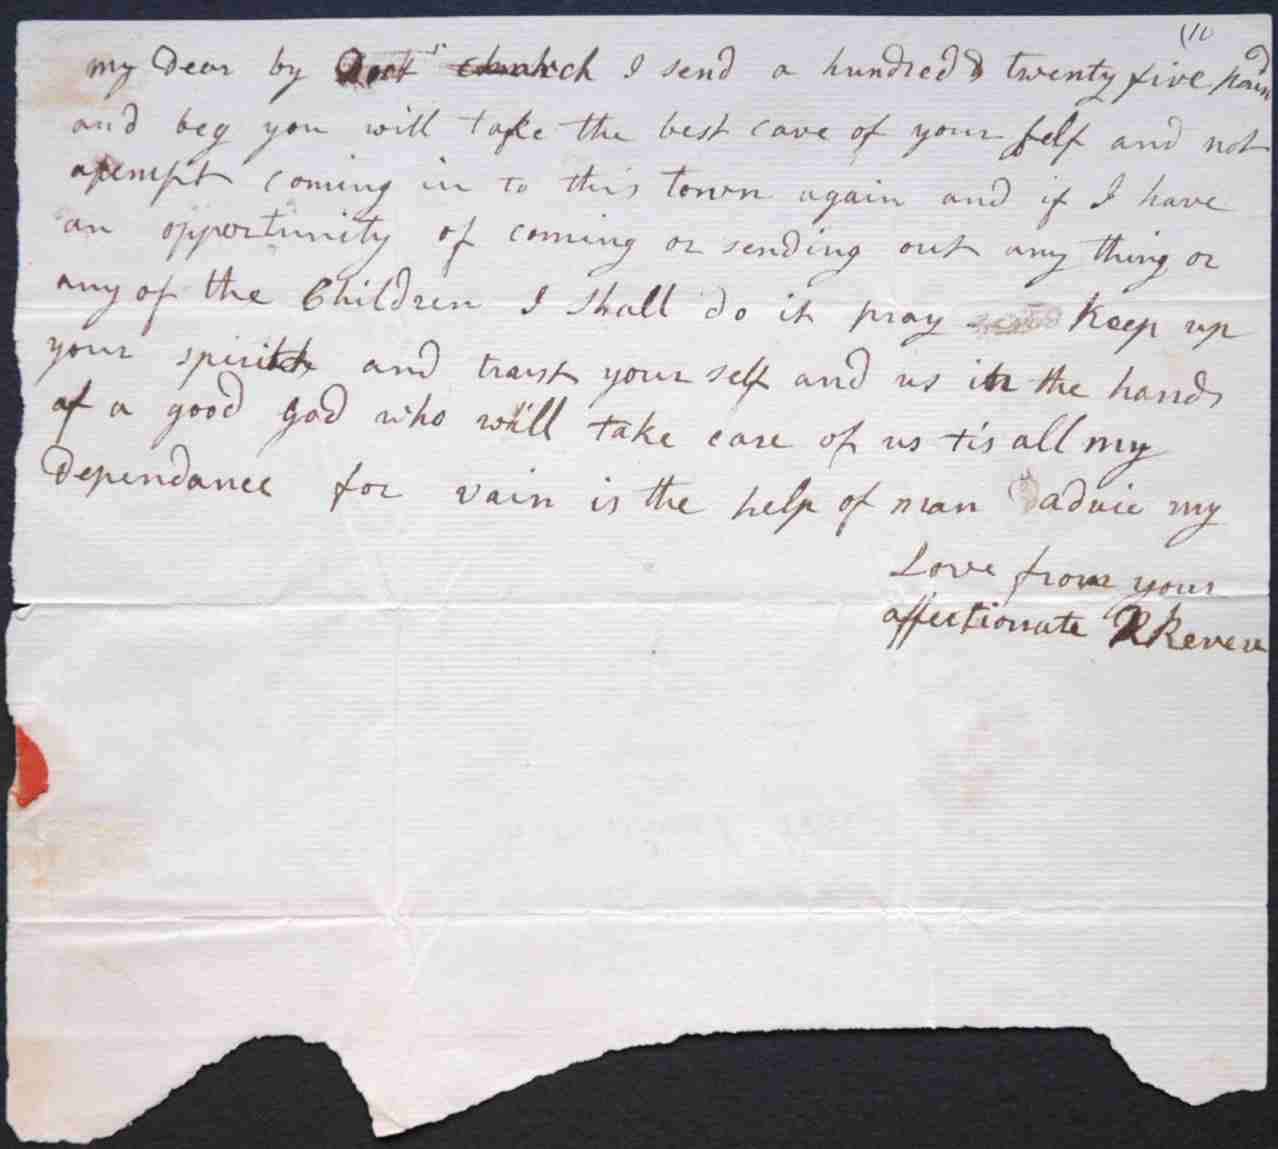 (10
my Dear by Doctr Church I send a hundred & twenty five pound
and beg you will take the best care of your self and not
atempt coming in to this town again and if I have
an opportunity of coming or sending out any thing or
any of the Children I shall do it pray keep up
your spirits and trust your self and us in the hands
of a good God who will take care of us tis all my
Dependance for vain is the help of man aduie my
Love from your
affectionate R Revere